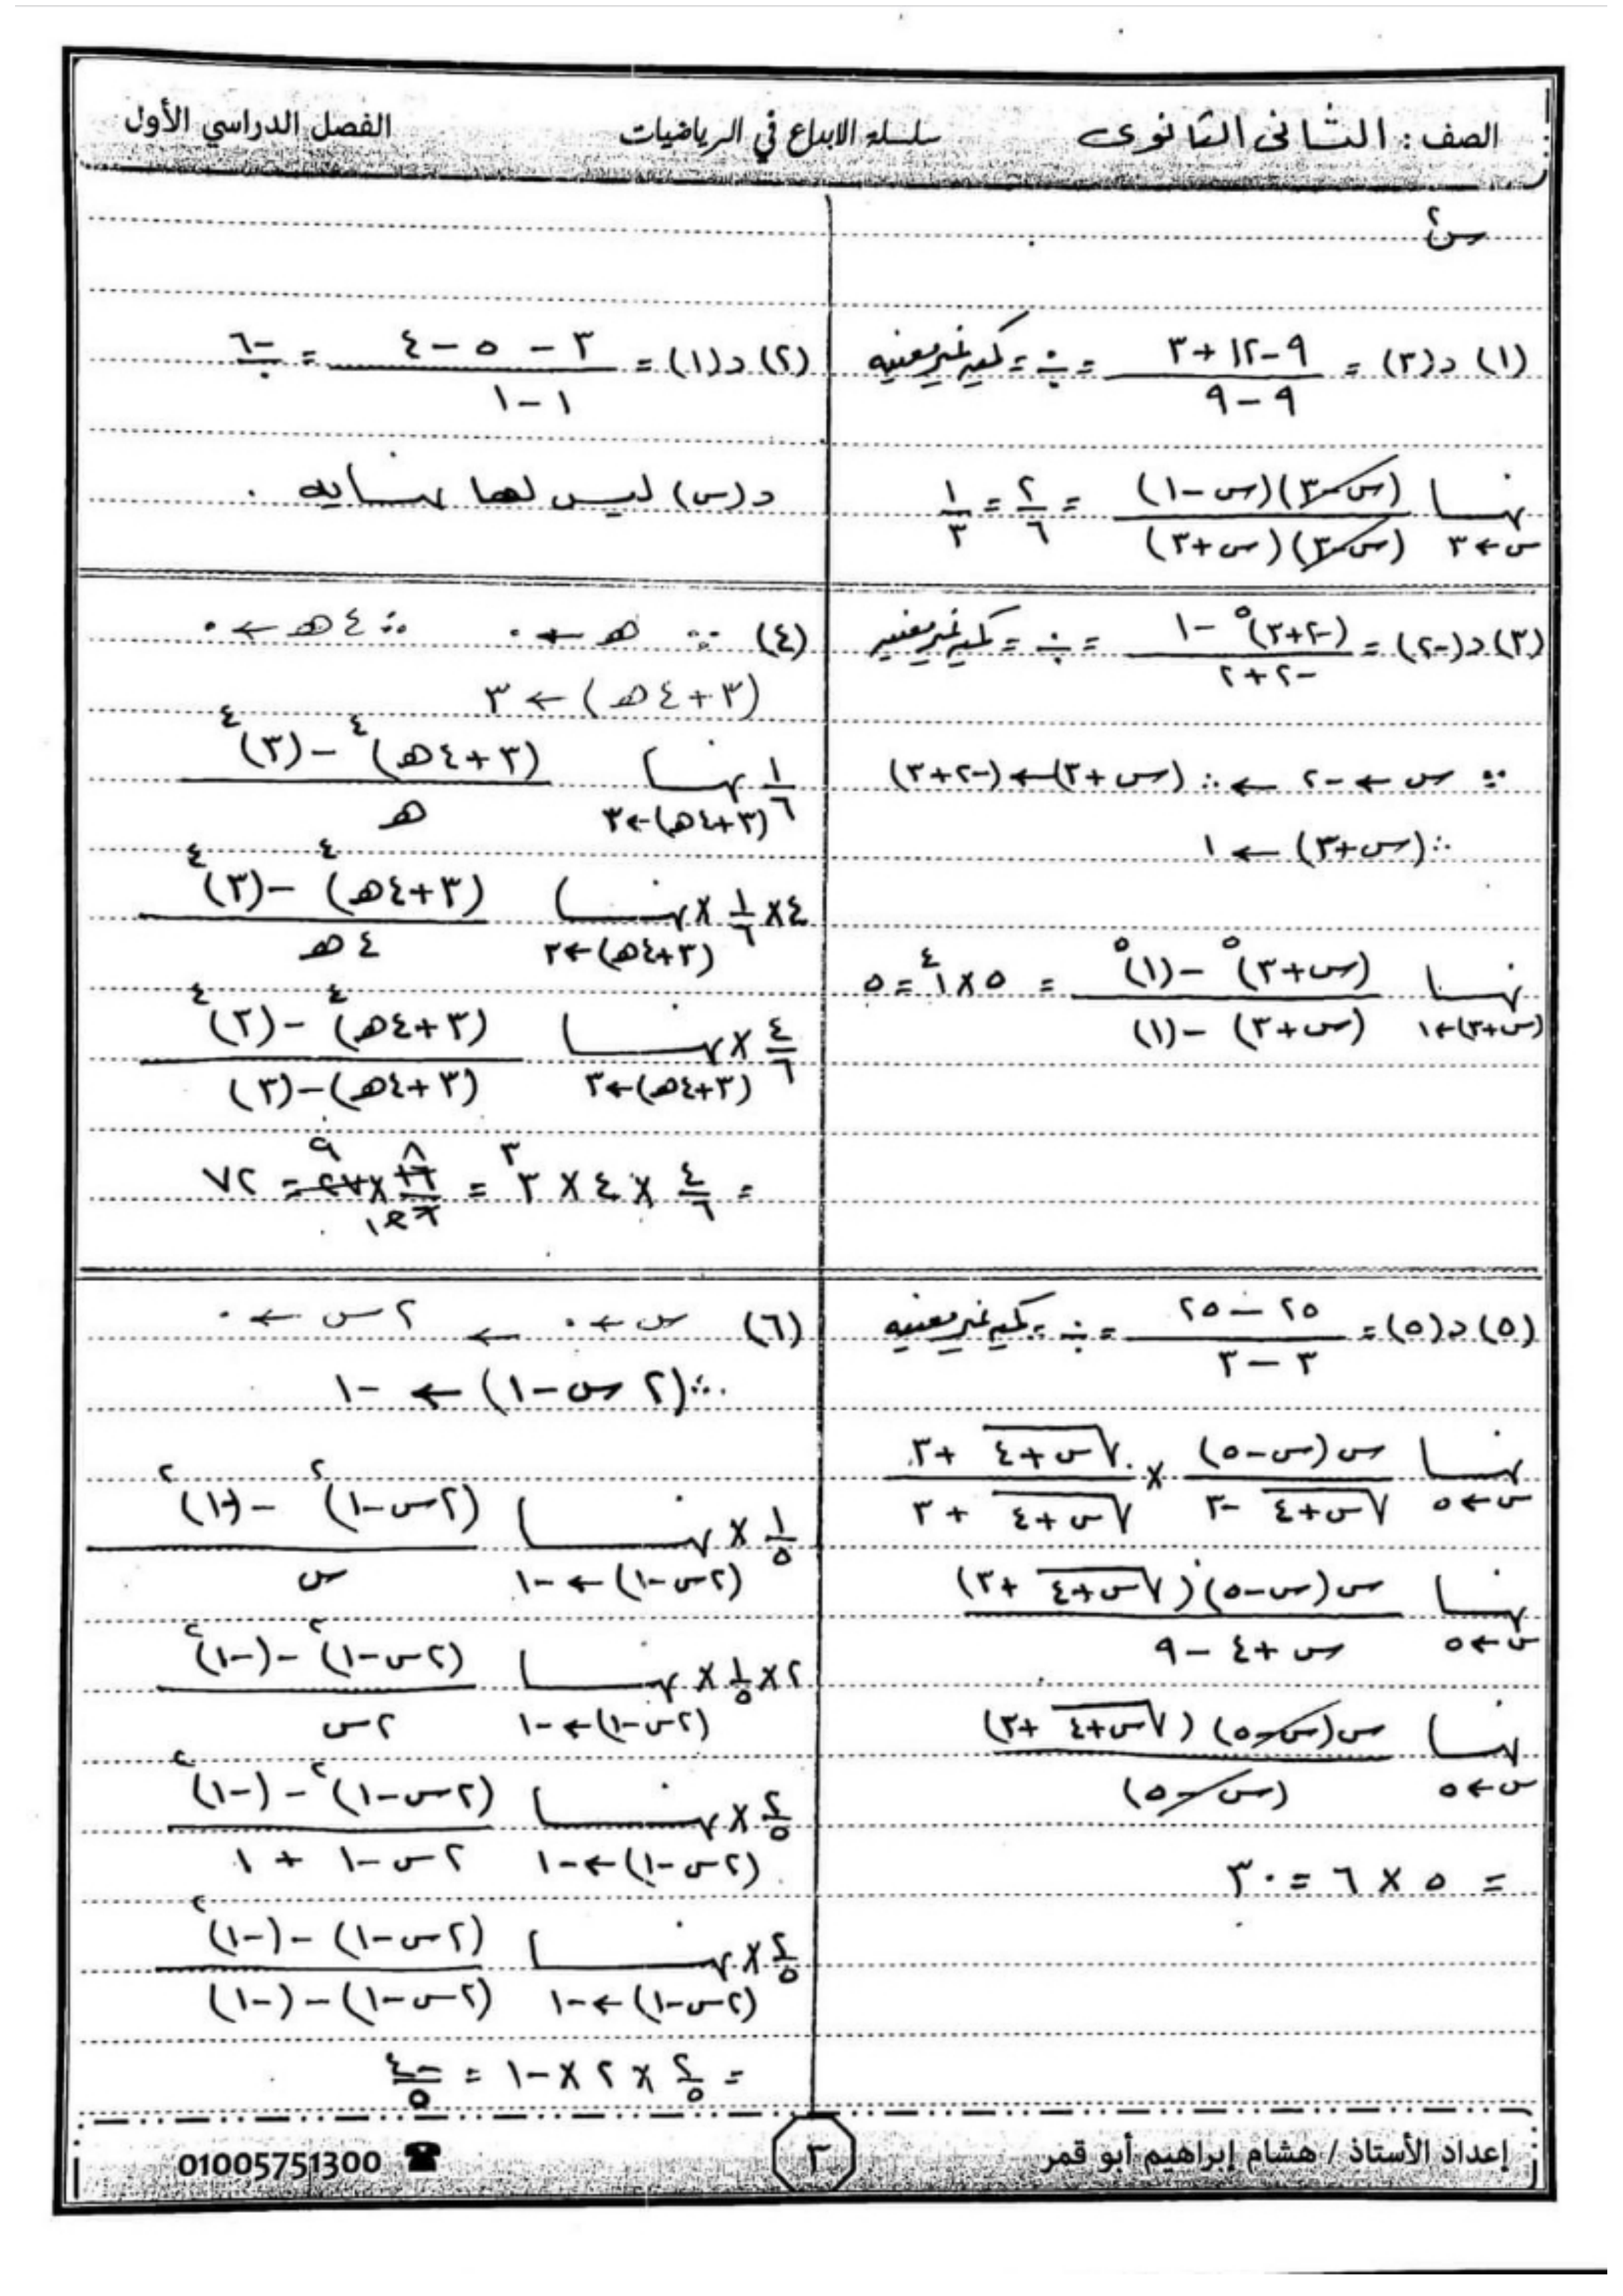 الصف : الثانى الثانوى سلسلة الابداع في الرياضيات الفصل الدراسي الأول
س٢
(١) د(٣) = (٩ - ١٢ + ٣)/(٩ - ٩) = ٠/٠ = كميه غير معينه
نهــا س←٣ (س-٣)(س-١)/(س-٣)(س+٣) = ٢/٦ = ١/٣
(٢) د(١) = (٣ - ٥ - ٤)/(١ - ١) = -٦/٠
د(س) ليس لها نهــايه .
(٣) د(-٢) = ((-٢+٣)^٥ - ١)/(-٢+٢) = ٠/٠ = كميه غير معينه
∵ س ← -٢ ← ∴ (س+٣) ← (-٢+٣)
∴ (س+٣) ← ١
نهــا (س+٣)←١ ((س+٣)^٥ - (١)^٥)/((س+٣) - (١)) = ٥ × ١^٤ = ٥
(٤) ∵ هـ ← ٠ ∴ ٤هـ ← ٠
(٣+٤هـ) ← ٣
١/٦ نهــا (٣+٤هـ)←٣ ((٣+٤هـ)^٤ - (٣)^٤)/هـ
٤ × ١/٦ × نهــا (٣+٤هـ)←٣ ((٣+٤هـ)^٤ - (٣)^٤)/٤هـ
٤/٦ × نهــا (٣+٤هـ)←٣ ((٣+٤هـ)^٤ - (٣)^٤)/((٣+٤هـ) - (٣))
= ٤/٦ × ٤ × ٣^٣ = ١٦/٦ × ٢٧ = ٧٢
(٥) د(٥) = (٢٥ - ٢٥)/(٣ - ٣) = ٠/٠ = كميه غير معينه
نهــا س←٥ س(س-٥)/(√(س+٤) - ٣) × (√(س+٤) + ٣)/(√(س+٤) + ٣)
نهــا س←٥ س(س-٥)(√(س+٤) + ٣)/(س + ٤ - ٩)
نهــا س←٥ س(س-٥)(√(س+٤) + ٣)/(س-٥)
= ٥ × ٦ = ٣٠
(٦) س ← ٠ ← ٢س ← ٠
∴ (٢س-١) ← -١
١/٥ × نهــا (٢س-١)←-١ ((٢س-١)^٢ - (-١)^٢)/س
٢ × ١/٥ × نهــا (٢س-١)←-١ ((٢س-١)^٢ - (-١)^٢)/٢س
٢/٥ × نهــا (٢س-١)←-١ ((٢س-١)^٢ - (-١)^٢)/(٢س-١ + ١)
٢/٥ × نهــا (٢س-١)←-١ ((٢س-١) - (-١)^٢)/((٢س-١) - (-١))
= ٢/٥ × ٢ × -١ = -٤/٥
إعداد الأستاذ / هشام إبراهيم أبو قمر ٣ 01005751300